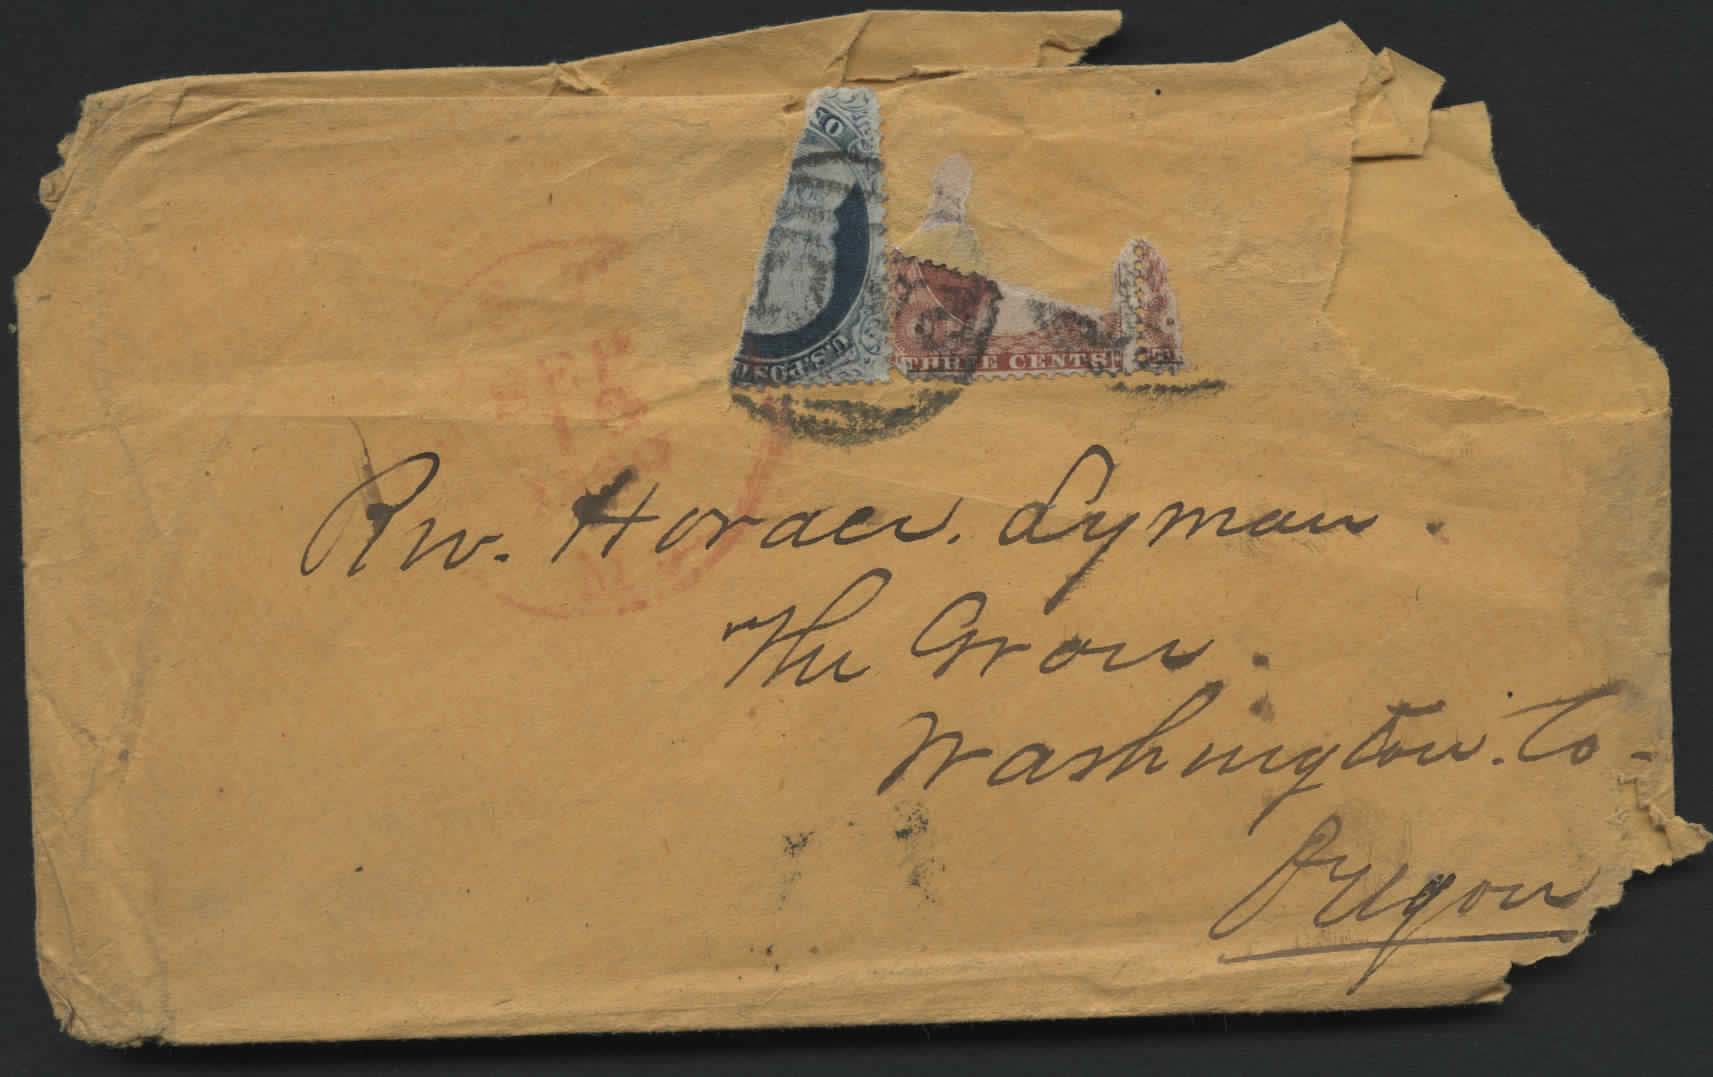 U.S. POS
THREE CENTS
SEP
Rev. Horace. Lyman.
The Grove.
Washington. Co-
Oregon